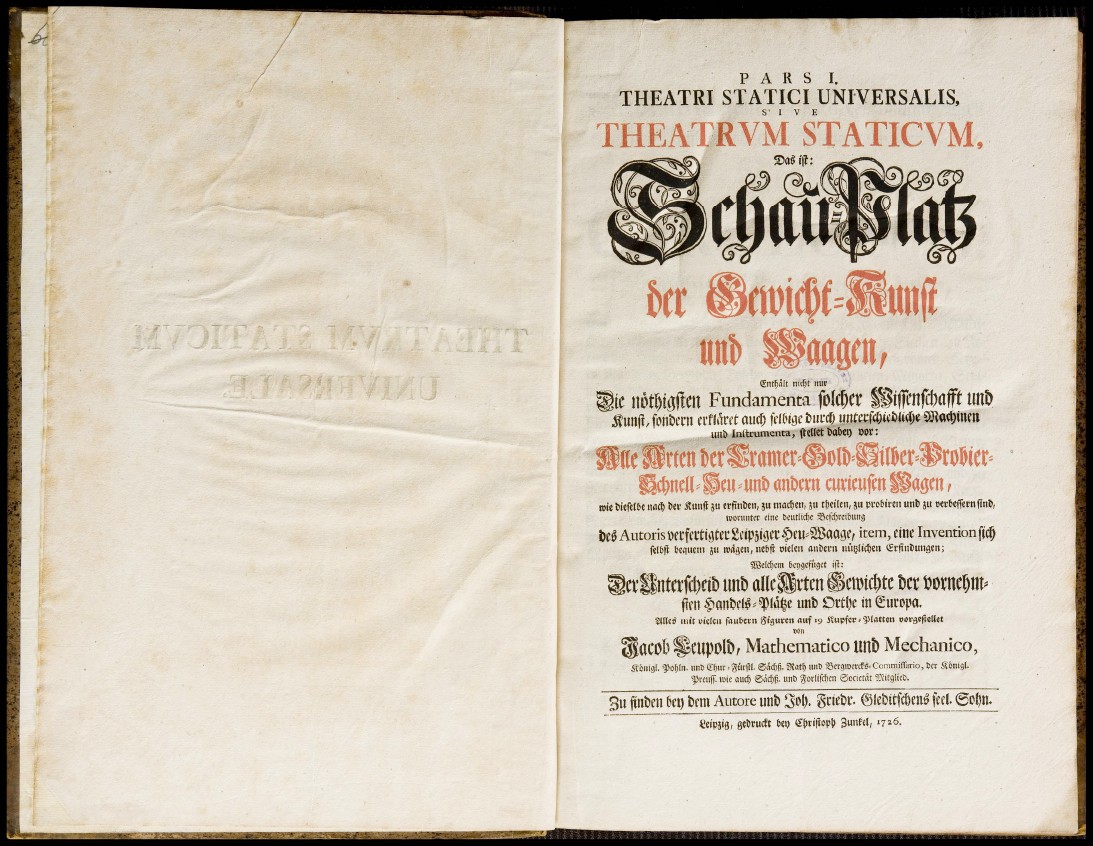 THEATRVM STATICVM
UNIVERSALE.
PARS I.
THEATRI STATICI UNIVERSALIS,
SIVE
THEATRVM STATICVM,
Das ist:
Schau-Platz
der Gewicht-Kunst
und Waagen,
Enthält nicht nur
Die nöthigsten Fundamenta solcher Wissenschafft und
Kunst, sondern erkläret auch selbige durch unterschiedliche Machinen
und Instrumenta, stellet dabey vor:
Alle Arten der Cramer-Gold-Silber-Probier-
Schnell-Heu-und andern curieusen Wagen,
wie dieselbe nach der Kunst zu erfinden, zu machen, zu theilen, zu probiren und zu verbessern sind,
worunter eine deutliche Beschreibung
des Autoris verfertigter Leipziger Heu-Waage, item, eine Invention sich
selbst bequem zu wägen, nebst vielen andern nützlichen Erfindungen;
Welchem beygefüget ist:
Der Unterscheid und alle Arten Gewichte der vornehm-
sten Handels-Plätze und Orthe in Europa.
Alles mit vielen saubern Figuren auf 19 Kupfer-Platten vorgestellet
von
Jacob Leupold, Mathematico und Mechanico,
Königl. Pohln. und Chur-Fürstl. Sächß. Rath und Bergwercks-Commissario, der Königl.
Preuss. wie auch Sächß. und Forlischen Societät Mitglied.
Zu finden bey dem Autore und Joh. Friedr. Gleditschens seel. Sohn.
Leipzig, gedruckt bey Christoph Zunkel, 1726.